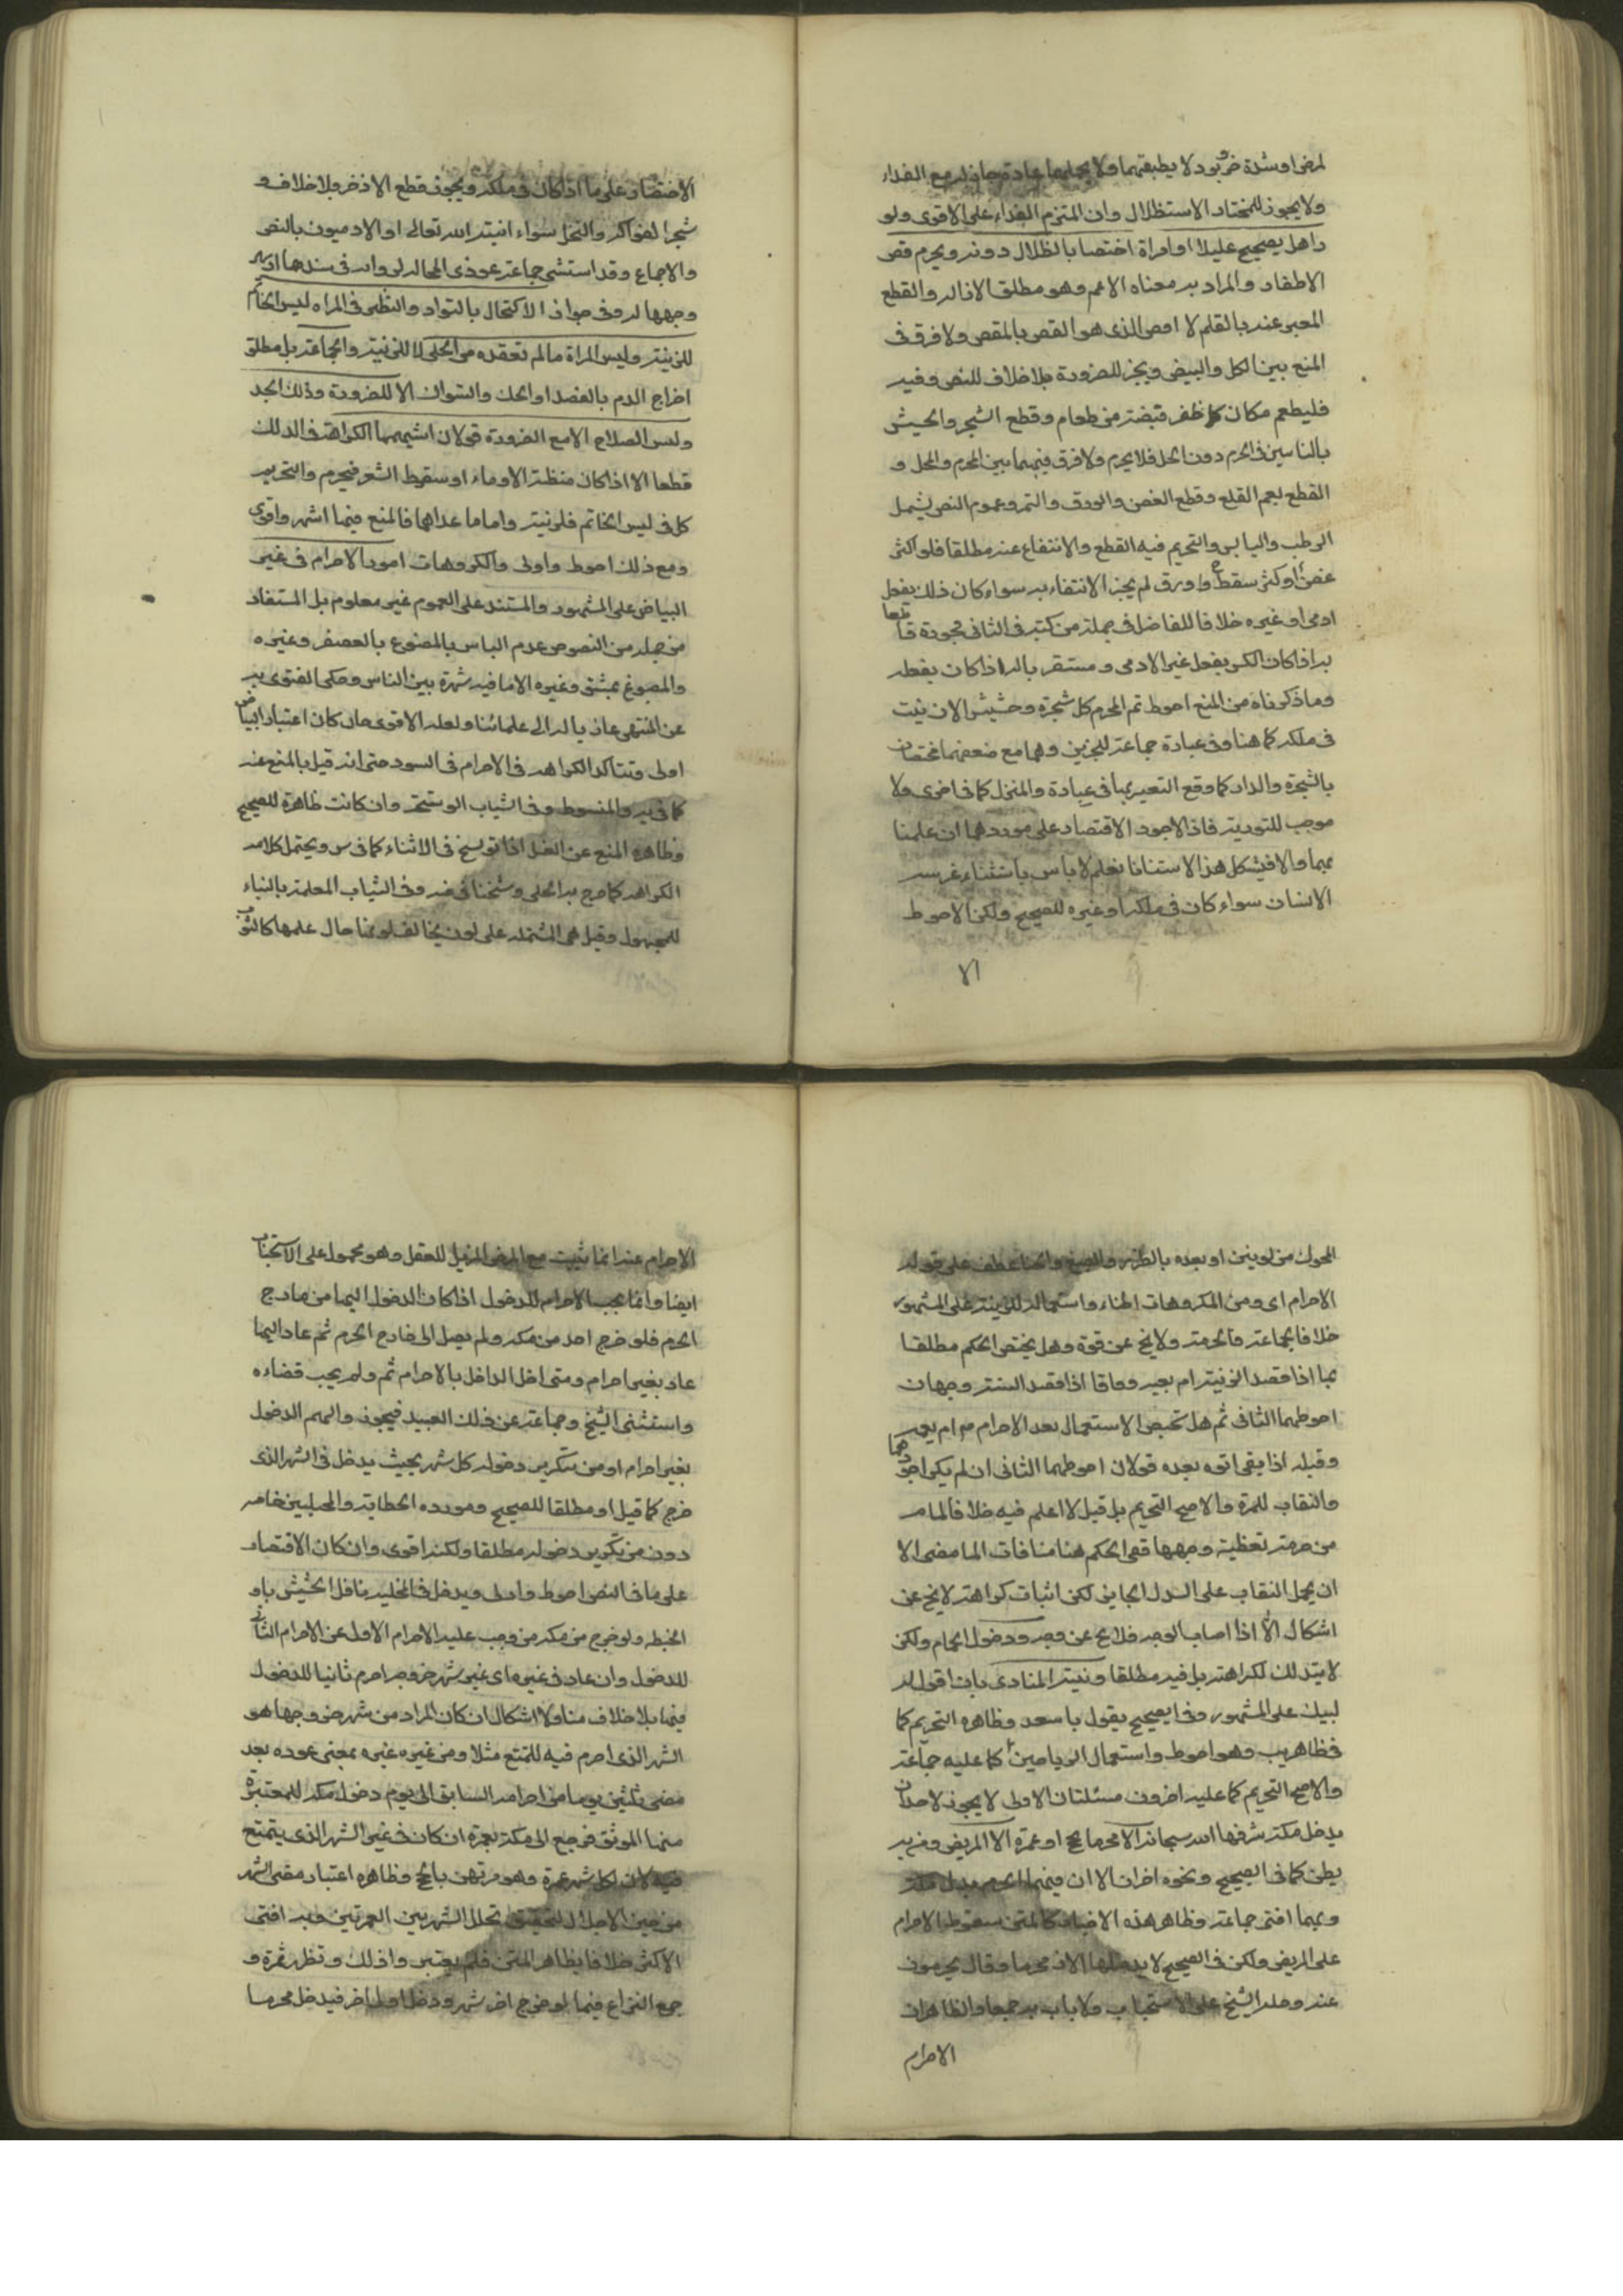 لمرض او شدة حر و برد لا يطيقهما ولا يتحملها عادة جاز له مع الفداء
ولا يجوز للمختار الاستظلال وان التزم الفداء على الاقوى ولو
زامل صحيح عليلا او امراة اختصا بالظلال دونه ويحرم قص
الاظفار والمراد به معناه الاعم وهو مطلق الازاله والقطع
المعبر عنه بالقلم لا اخص الذى هو القص بالمقص ولا فرق فى
المنع بين الكل والبعض ويجز للضرورة بلا خلاف للنص وفيه
فليطعم مكان كل ظفر قبضة من طعام وقطع الشجر والحشيش
النابتين فى الحرم دون الحل فلا يحرم ولا فرق فيهما بين المحرم والمحل و
القطع يعم القلع وقطع الغصن والورق والثمر وعموم النص يشمل
الرطب واليابس والتحريم فيه القطع والانتفاع عنه مطلقا فلو انكسر
غصن او كسر سقط او ورق لم يجز الانتفاع به سواء كان ذلك بفعل
ادمى او غيره خلافا للفاضل فى جملة من كتبه فى الثانى فجوزه قاطعا
به اذا كان الكسر بفعل غير الادمى ومستقربا له اذا كان بفعله
وما ذكرناه من المنع احوط ثم المحرم كل شجرة وحشيش الا ان ينبت
فى ملكه كما هنا وفى عبارة جماعة للخبرين وهما مع ضعفهما مختصان
بالشجرة والدار كما وقع التعبير بها فى عبارة والمنزل كما فى اخرى ولا
موجب للتعدية فاذا الاجود الاقتصار على موردهما ان علمنا
بهما والا فيشكل هذا الاستثناء نعم لا باس باستثناء غرسه
الانسان سواء كان فى ملكه او غيره للصحيح ولكن الاحوط
الا
الاختصار على ما اذا كان فى ملكه ويجوز قطع الاذخر بلا خلاف و
شجر الفواكه والنخل سواء انبته الله تعالى او الادميون بالنص
والاجماع وقد استثنى جماعة عوذى المحاله لروايه فى سندها ارسال
وجهها له وفى جواز الاكتحال بالسواد والنظر فى المراه لبس الخاتم
للزينة ولبس المراة ما لم تعتده من الحلى لا للزينة والحجامة بل مطلق
اخراج الدم بالفصد او الحك والسواك الا للضرورة وذلك الجسد
ولبس السلاح الا مع الضرورة قولان اشبههما الكراهة فى الدلك
قطعا الا اذا كان مظنة الادماء او سقوط الشعر فيحرم والتحريم
كل فى لبس الخاتم فلزينة واما ما عداهما فالمنع فيها اشهر واقوى
ومع ذلك احوط واولى والمكروهات امور الاحرام فى غير
البياض على المشهور والمستند على العموم غير معلوم بل المستفاد
من جملة من النصوص عدم الباس بالمصبوغ بالعصفر وغيره
والمصبوغ بمشق وغيره الا ما فيه شهرة بين الناس وحكى الفتوى به
عن المنتهى عازيا له الى علمائنا ولعله الاقوى وان كان اعتبار البياض
اولى وتتاكد الكراهه فى الاحرام فى السود حتى انه قيل بالمنع عنه
كما فى يه والمبسوط وفى الثياب الوسخة وان كانت طاهرة للصحيح
وظاهره المنع عن الغسل اذا توسخ فى الاثناء كما فى س ويحتمل كلامه
الكراهه كما صرح به الحلى وشيخنا فى ضه وفى الثياب المعلمة بالبناء
للمجهول وقيل هى المشتملة على لون يخالف لونها حال علمها كالثوب
المحوك من لونين او بعده بالطرز والصبغ والحناء عطف على قوله
الاحرام اى ومن المكروهات الحناء واستعماله للزينة على المشهور
خلافا لجماعة فالحرمة ولا يخ عن قوة وهل يختص الحكم مطلقا
بما اذا قصد الزينة ام يعمه وما اذا قصد السنة وجهان
احوطهما الثانى ثم هل يختص الاستعمال بعد الاحرام به ام يعمه
وقبله اذا بقى اثره بعده قولان احوطهما الثانى ان لم يكن اجودهما
والنقاب للمرة والاصح التحريم بل قيل لا اعلم فيه خلافا لما مر
من حرمة تغطية وجهها ففى الحكم هنا منافات لما مضى الا
ان يحمل النقاب على السدل الجايز لكن اثبات كراهته لا يخ عن
اشكال الا اذا اصاب الوجه فلا يخ عن وجه ودخول الحمام ولكن
لا يتدلك لكراهته بل فيه مطلقا وتلبية المنادى بان اقول له
لبيك على المشهور وفى الصحيح يقول يا سعد وظاهره التحريم كما
فى ظاهر يب وهو احوط واستعمال الرياحين كما عليه جماعة
والاصح التحريم كما عليه اخرون مسئلتان الاولى لا يجوز لاحد ان
يدخل مكة شرفها الله سبحانه الا محرما بحج او عمرة الا المريض ومن به
بطن كما فى الصحيح ونحوه اخران الا ان فيهما الحرم بدل مكة
وبهما افتى جماعة وظاهر هذه الاخبار كالمتن سقوط الاحرام
على المريض ولكن فى الصحيح لا يدخلها الا محرما وقال يحرمون
عنه وحمله الشيخ على الاستحباب ولا باس به جمعا والظاهر ان
الاحرام
الاحرام عنه انما يثبت مع المرض المزيل للعقل وهو محمول على الاستحباب
ايضا وانما يجب الاحرام للدخول اذا كان الدخول اليها من خارج
الحرم فلو خرج احد من مكه ولم يصل الى خارج الحرم ثم عاد اليها
عاد بغير احرام ومتى اخل الداخل بالاحرام ثم ولم يجب قضاءه
واستثنى الشيخ وجماعة عن ذلك العبيد فيجوز والهم الدخول
بغير احرام او من يتكرر دخوله كل شهر بحيث يدخل فى الشهر الذى
خرج كما قيل او مطلقا للصحيح ومورده الحطابة والمجتلبين خاصه
دون من يتكرر دخوله مطلقا ولكنه اقوى وان كان الاقتصار
على ما فى النص احوط واولى ويدخل فى المجتلبه ناقل الحشيش او
الحنطه ولو خرج من مكه من وجب عليه الاحرام الاول عن الاحرام الثانى
للدخول وان عاد فى غيره اى غير شهر خروجه احرم ثانيا للدخول
فيها بلا خلاف منا ولا اشكال ان كان المراد من شهر خروجها هو
الشهر الذى احرم فيه للتمتع مثلا ومن غيره غيره بمعنى عوده بعد
مضى ثلثين يوما من احرامه السابق الى يوم دخول مكه للمعتبرة
منها الموثق فرجع الى مكة بعمرة ان كان فى غير الشهر الذى يتمتع
فيه لان لكل شهر عمرة وهو مرتهن بالحج وظاهره اعتبار مضى الشهر
من حين الاحلال لتحقيق تخلل الشهر بين العمرتين وبه افتى
الاكثر خلافا لظاهر المتن فلم يعتبر واذلك وتظهر ثمرة و
جمع النزاع فيما لو خرج اخر شهر ودخل اول اخر فيدخل محرما